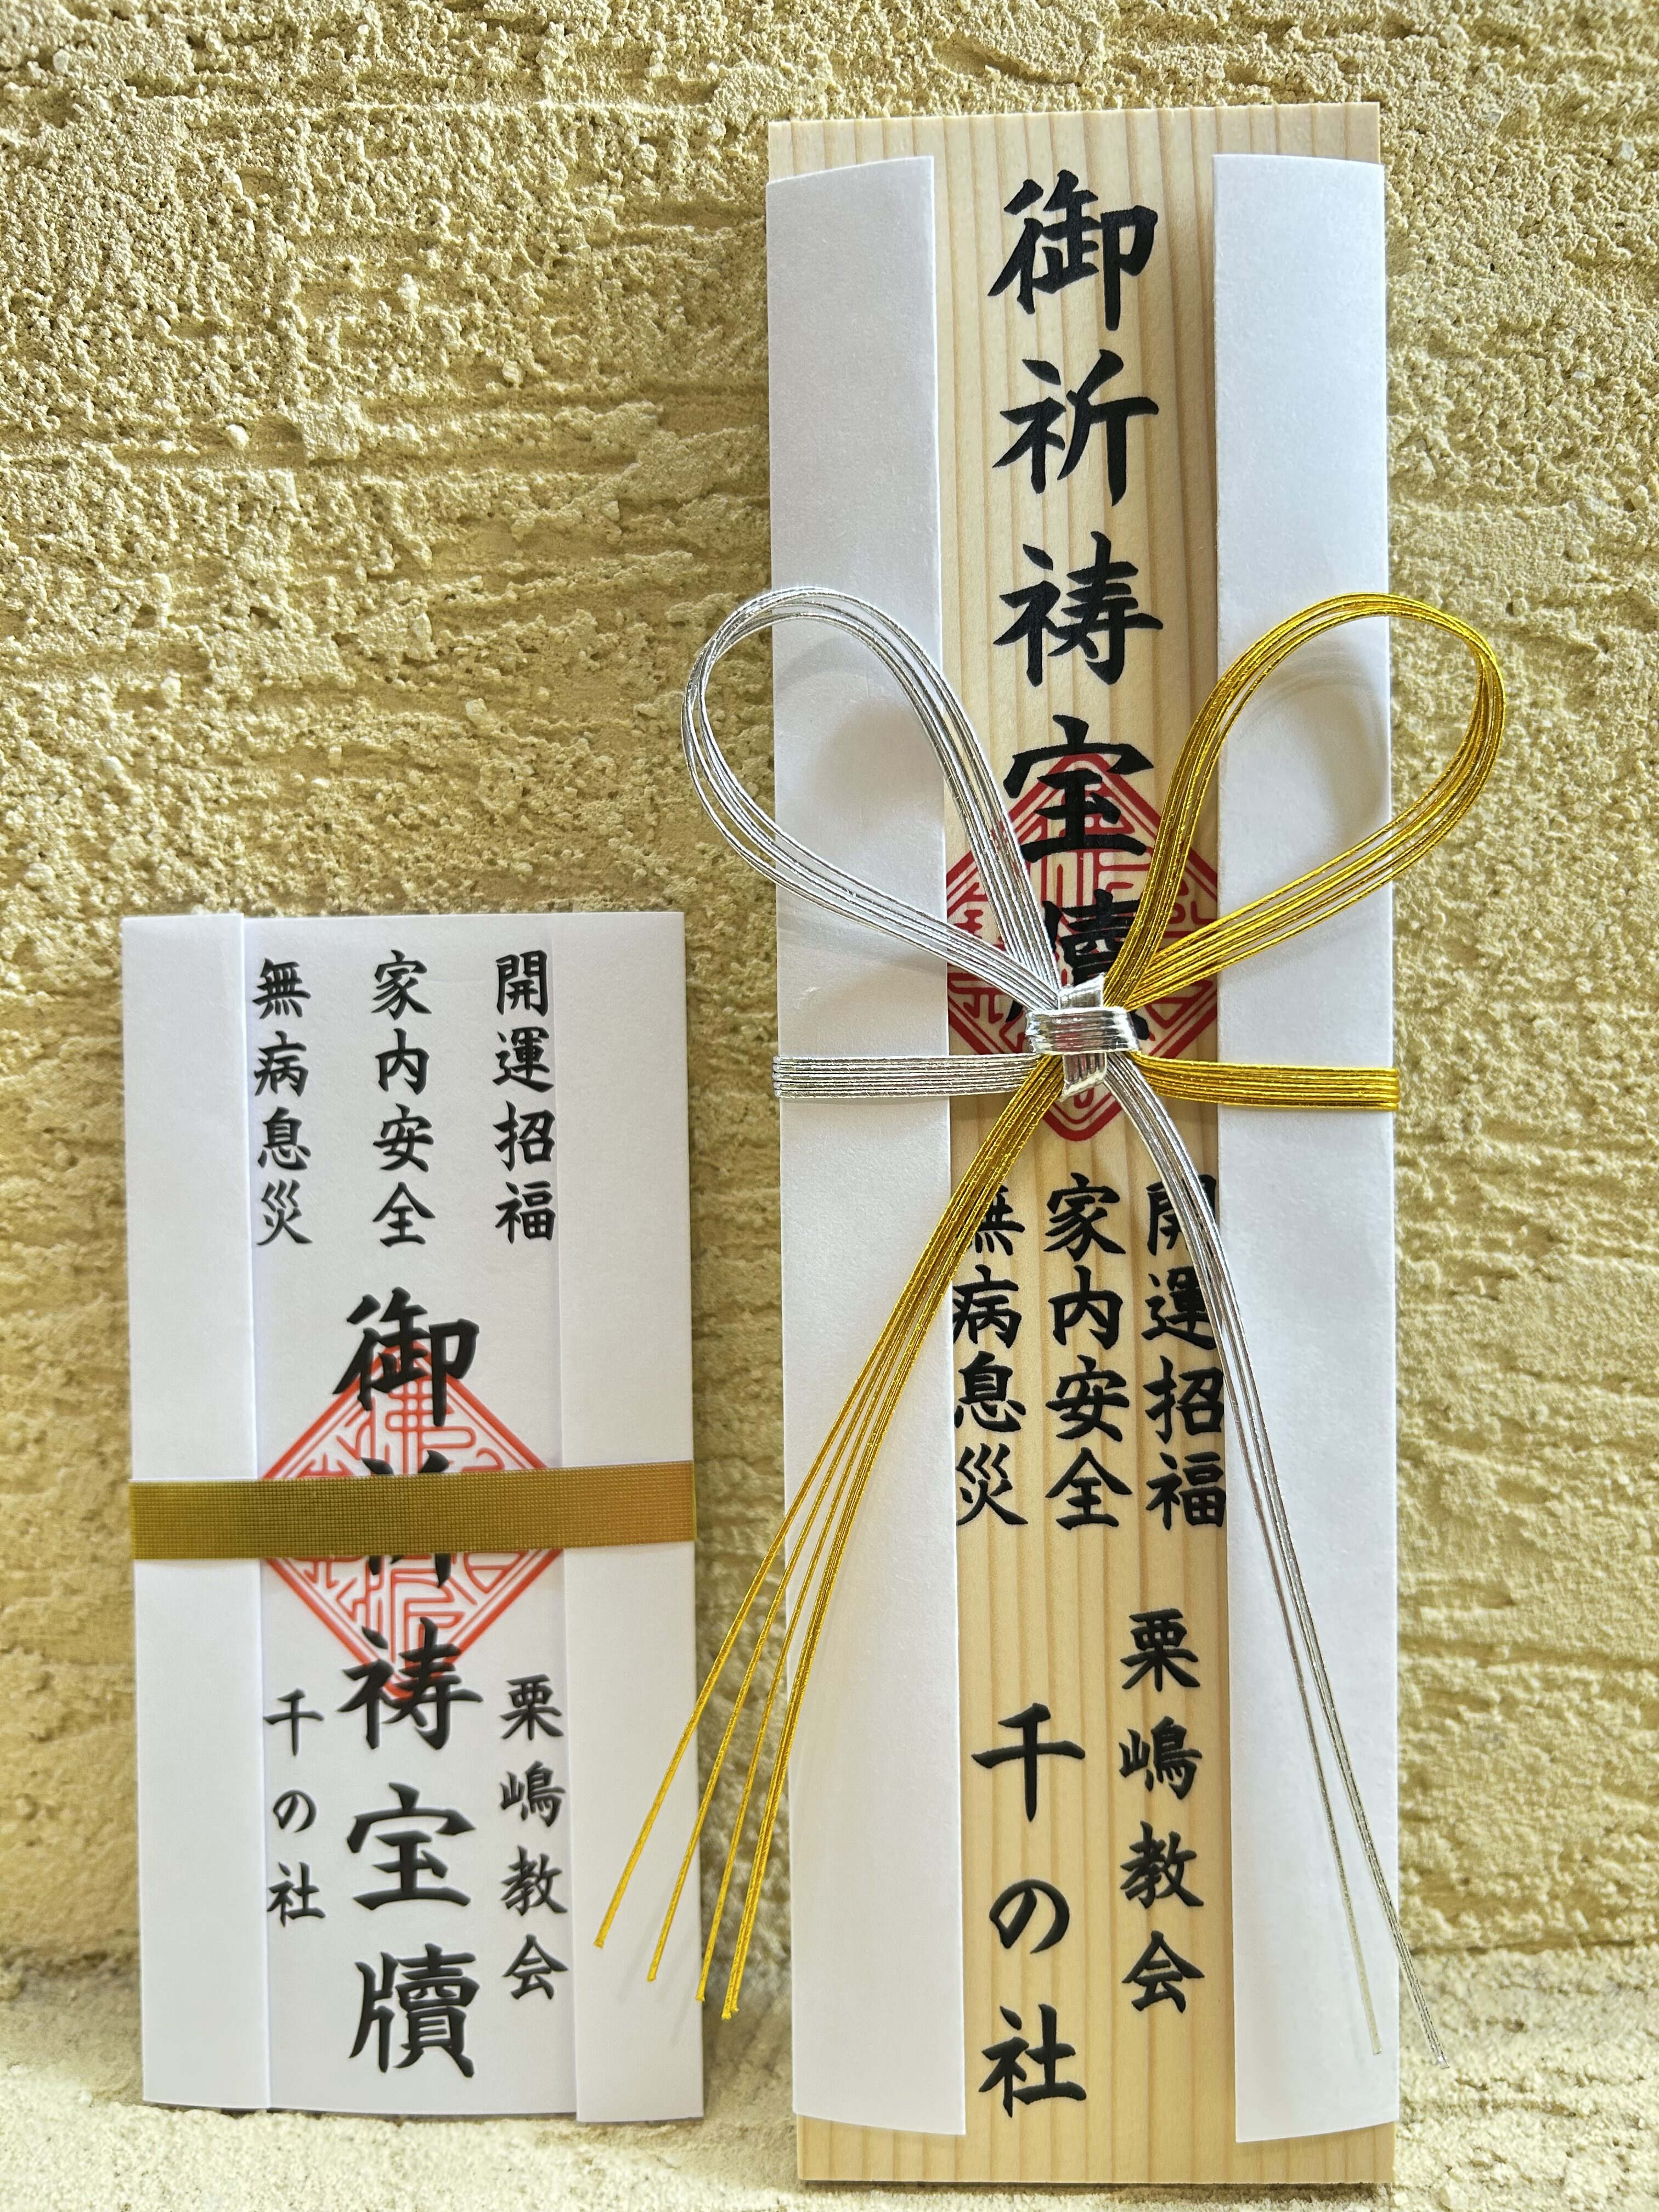 開運招福
家内安全
無病息災
御祈祷宝牘
栗嶋教会
千の社
御祈祷宝牘
開運招福
家内安全
無病息災
栗嶋教会
千の社